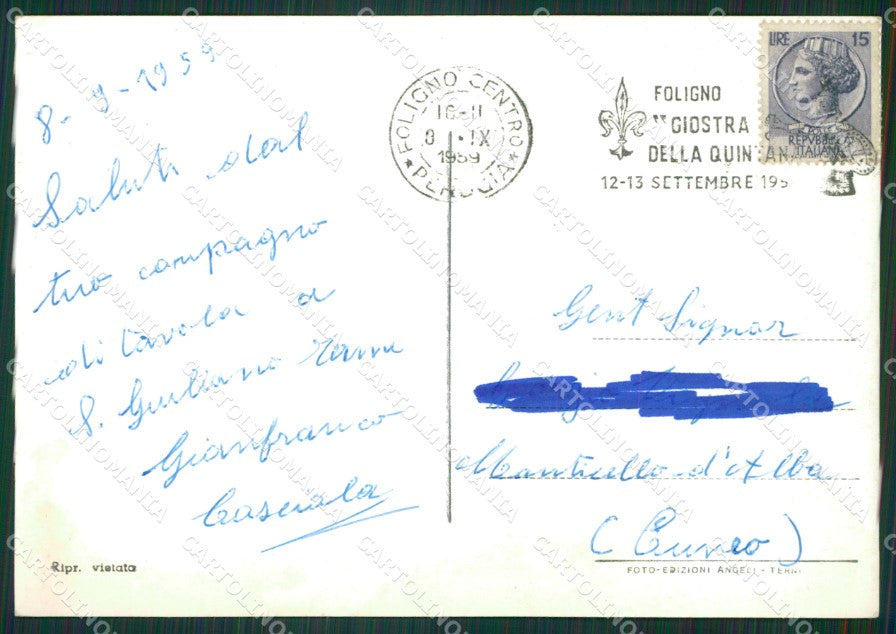 8-9-1959
Saluti dal
tuo compagno
di tavola a
S. Giuliano Terme
Gianfranco
Ripr. vietata
FOLIGNO CENTRO
16-11
8 IX
1959
PERUGIA
FOLIGNO
"GIOSTRA
DELLA QUINTANA
12-13 SETTEMBRE 195
LIRE 15
REPVBBLICA
ITALIANA
Gent Signor
Monticello d'Alba
(Cuneo)
FOTO-EDIZIONI ANGELI - TERNI
CARTOLINOMANIA